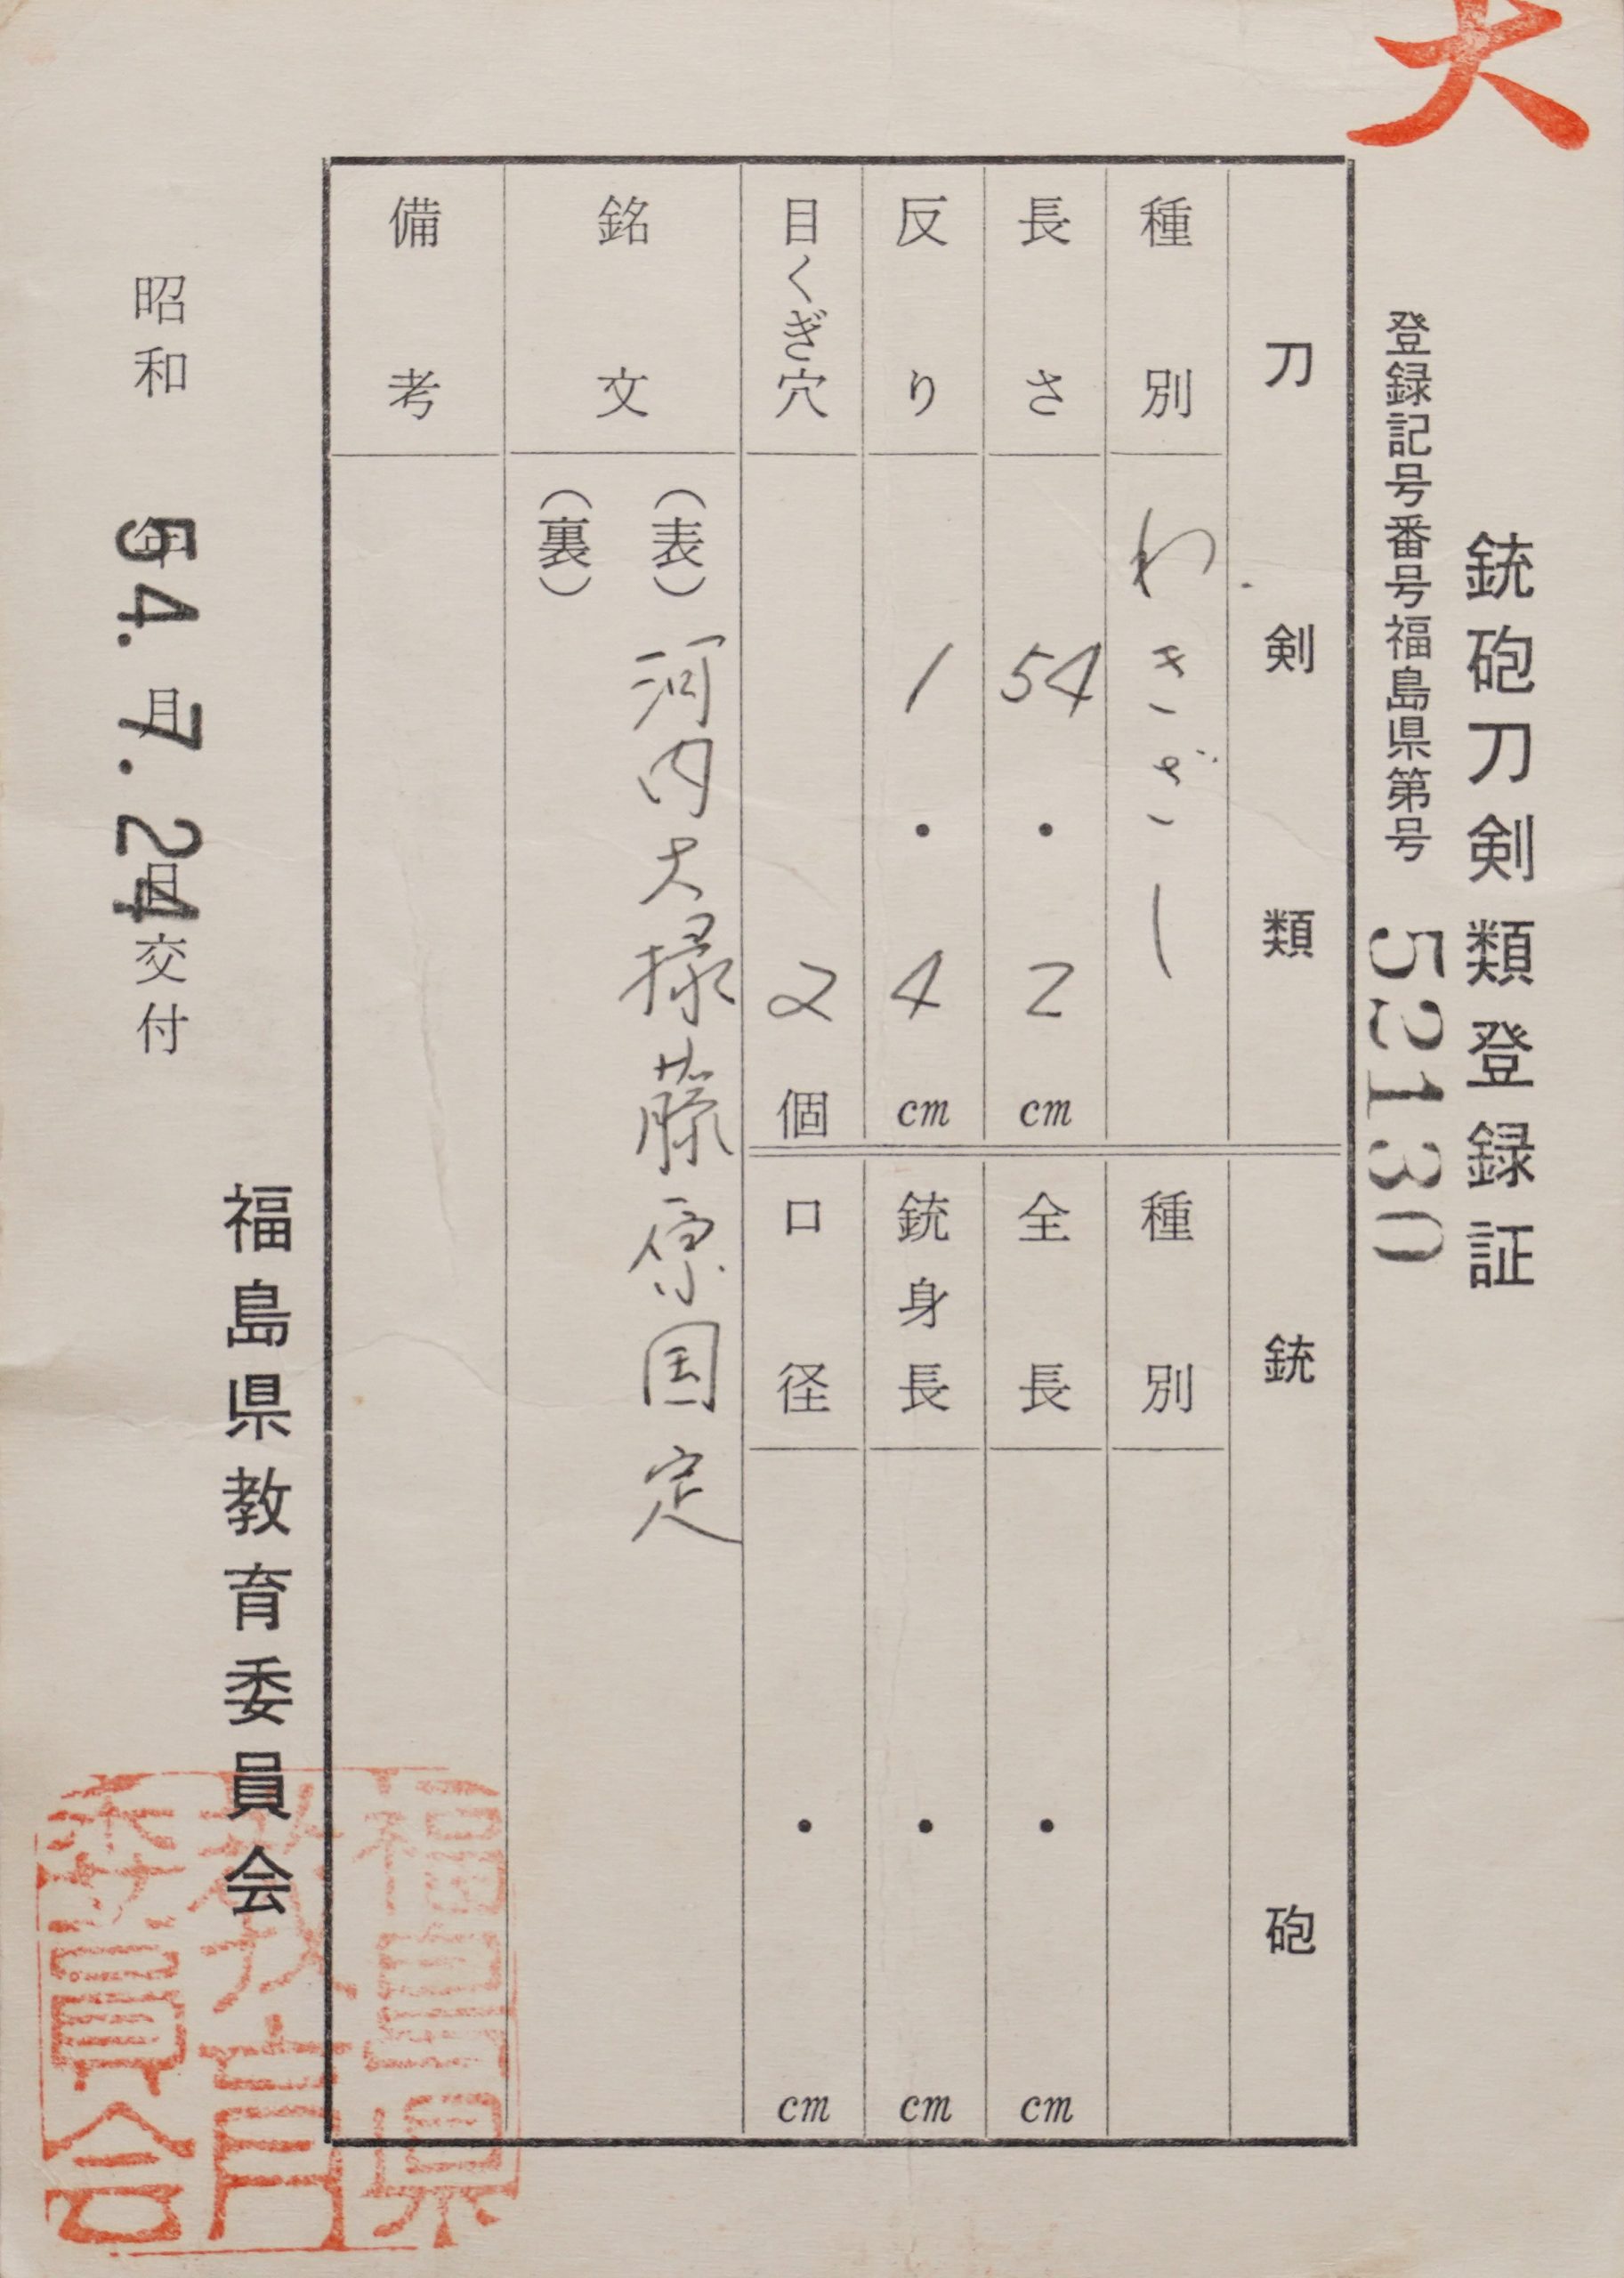 大
銃砲刀剣類登録証
登録記号番号福島県第号 52130
刀剣類
種別 わきざし
長さ 54.2cm
反り 1.4cm
目くぎ穴 2個
銃砲
種別
全長 . cm
銃身長 . cm
口径 . cm
銘文
(表) 河内大掾藤原国定
(裏)
備考
福島県教育委員会
昭和 年 月 日交付
54. 7. 24
福島県
教育
委員会